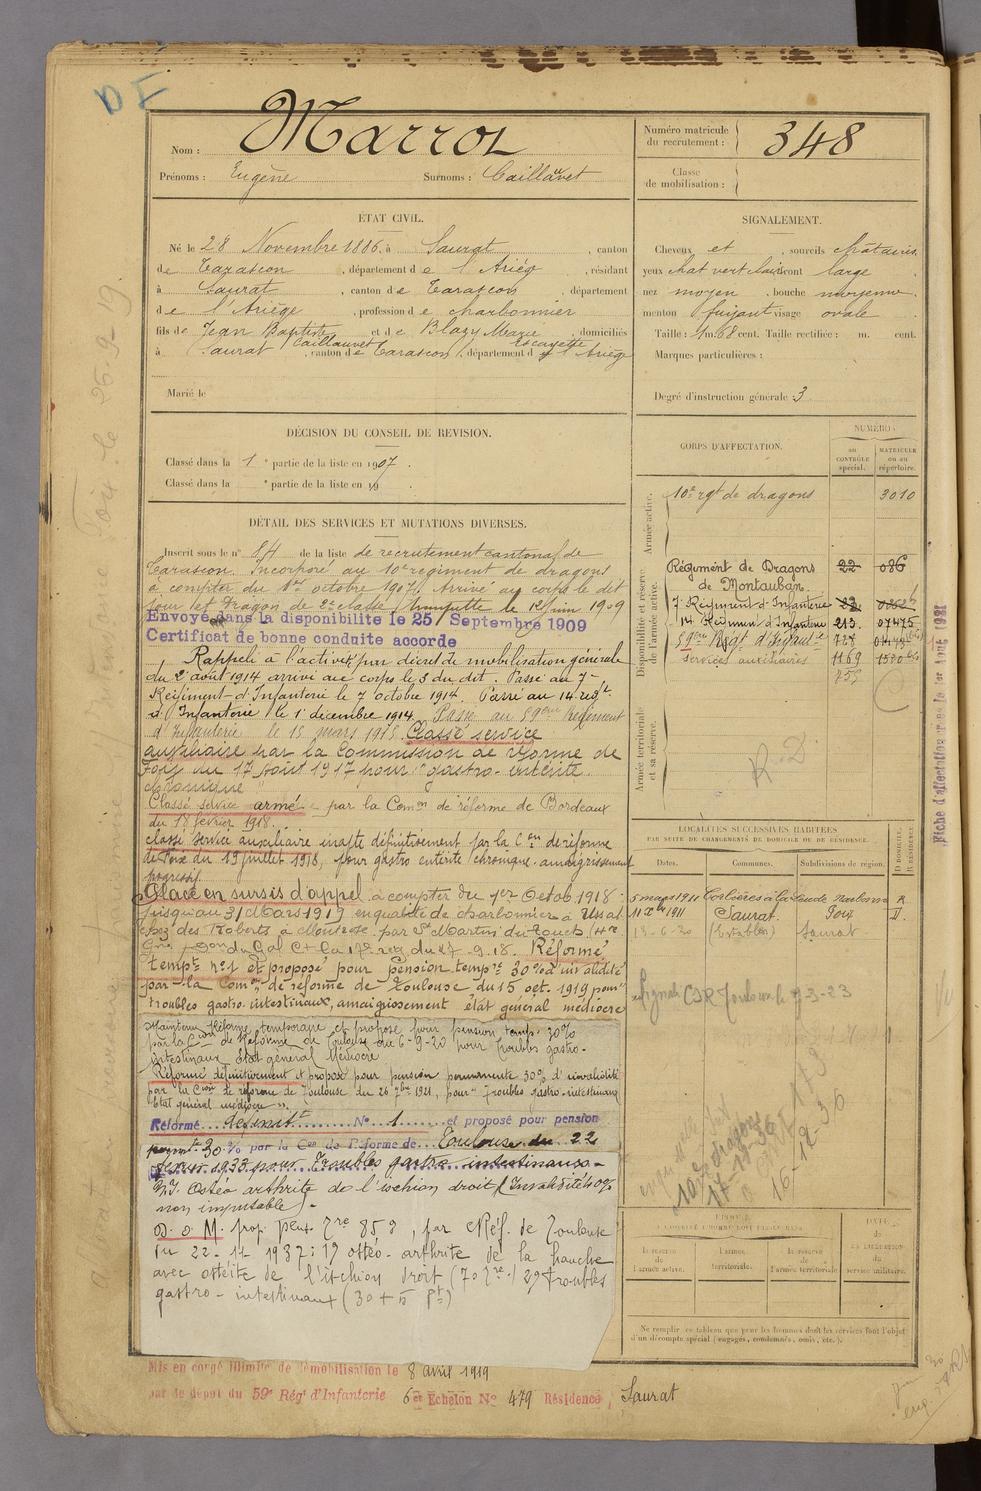 DF
Nom : Marrot
Prénoms : Eugène Surnoms : Caillauvet
Numéro matricule du recrutement : 348
Classe de mobilisation :
ÉTAT CIVIL.
Né le 28 Novembre 1886, à Saurat, canton
de Tarascon, département de l'Ariég, résidant
à Saurat, canton de Tarascon, département
de l'Ariège, profession de charbonnier
fils de Jean Baptiste et de Blazy Marie, domiciliés
Caillauvet Escayette
à Saurat, canton de Tarascon, département d l'Ariège
Marié le
SIGNALEMENT.
Cheveux et, sourcils châtains
yeux chat vert clairs front large
nez moyen, bouche moyenne,
menton fuyant visage ovale
Taille : 1 m. 68 cent. Taille rectifiée : m. cent.
Marques particulières :
Degré d'instruction générale 3
DÉCISION DU CONSEIL DE REVISION.
Classé dans la 1e partie de la liste en 1907.
Classé dans la e partie de la liste en 19
DÉTAIL DES SERVICES ET MUTATIONS DIVERSES.
Inscrit sous le n° 84 de la liste de recrutement cantonal de
Tarascon. Incorporé au 10e régiment de dragons
à compter du 1er octobre 1907. Arrivé au corps le dit
jour et Dragon de 2e classe. Trompette le 12 juin 1909
Envoyé dans la disponibilité le 25 Septembre 1909
Certificat de bonne conduite accordé
Rappelé à l'activité par décret de mobilisation générale
du 2 août 1914 arrivé au corps le 3 du dit. Passé au 7e
Régiment d'Infanterie le 7 octobre 1914. Passé au 14e régt.
d'Infanterie le 1er décembre 1914. Passé au 59ème Régiment
d'Infanterie le 15 mars 1915. Classé service
auxiliaire par la Commission de réforme de
Foix du 17 Août 1917 pour "gastro-entérite
chronique"
Classé service armé par la Comon de réforme de Bordeaux
du 18 février 1918.
classé service auxiliaire inapte définitivement par la Con de réforme
de Foix du 19 juillet 1918, pour gastro entérite chronique - amaigrissement
progressif.
Placé en sursis d'appel à compter du 1er Octob 1918
jusqu'au 31 Mars 1919 en qualité de charbonnier à Ussat
chez des Roberts à par St Martin du Touch (Hte
Gne) du Gal Ct la 17e reg du 27-9-18. Réformé
tempre n°1 et proposé pour pension tempre 30% d'invalidité
par la Comon de réforme de Toulouse du 15 oct. 1919 pour
troubles gastro-intestinaux, amaigrissement état général médiocre
Maintenu Réformé temporaire et proposé pour pension temp. 30%
par la Con de Réforme de Toulouse du 6-9-20 pour troubles gastro-
intestinaux État général Médiocre
Réformé définitivement et proposé pour pension permanente 30% d'invalidité
par la Con de réforme de Toulouse du 26 7bre 1921, pour "Troubles gastro-intestinaux
état général médiocre".
Réformé définit N° 1 et proposé pour pension
permte 30 % par la Con de Réforme de Toulouse du 22
1933 pour Troubles gastro intestinaux -
Ostéo arthrite de l'ischion droit (Invalidité 40%
non imputable) -
D. o M. prop. pens. 85%, par CRéf. de Toulouse
du 22-11 1937 : 1° ostéo-arthrite de la hanche
avec ostéite de l'ischion droit (70 %) 2° troubles
gastro-intestinaux (30 + 5 pts)
Mis en congé illimité de démobilisation le 8 avril 1919
par le dépôt du 59e Régt d'Infanterie 6e Echelon N° 479 Résidence, Saurat
CORPS D'AFFECTATION.
NUMÉROS
au CONTRÔLE spécial.
MATRICULE ou au répertoire.
Armée active.
10e rgt de dragons 3010
Disponibilité et réserve de l'armée active.
Régiment de Dragons de Montauban 22 086
7e Régiment d'Infanterie
14e Régiment d'Infanterie 213 07475
59ème Régt d'Infante 727
services auxiliaires 1169 1530
755
Armée territoriale et sa réserve.
R.D.
LOCALITÉS SUCCESSIVES HABITÉES
PAR SUITE DE CHANGEMENTS DE DOMICILE OU DE RÉSIDENCE.
Dates. Communes. Subdivisions de région. D DOMICILE. R RÉSIDENCE.
5 mars 1911 Corbières à la Narbonne R
11 Xbre 1911 Saurat. Foix D.
13-6-30 Saurat
Signalé CSR Toulouse le 7-3-23
10e dragons
17-12-36
ÉPOQUE
la réserve de l'armée active.
l'armée territoriale.
la réserve de l'armée territoriale
DATE de LA LIBÉRATION du service militaire.
Ne remplir ce tableau que pour les hommes dont les services font l'objet
d'un décompte spécial (engagés, condamnés, omis, etc.).